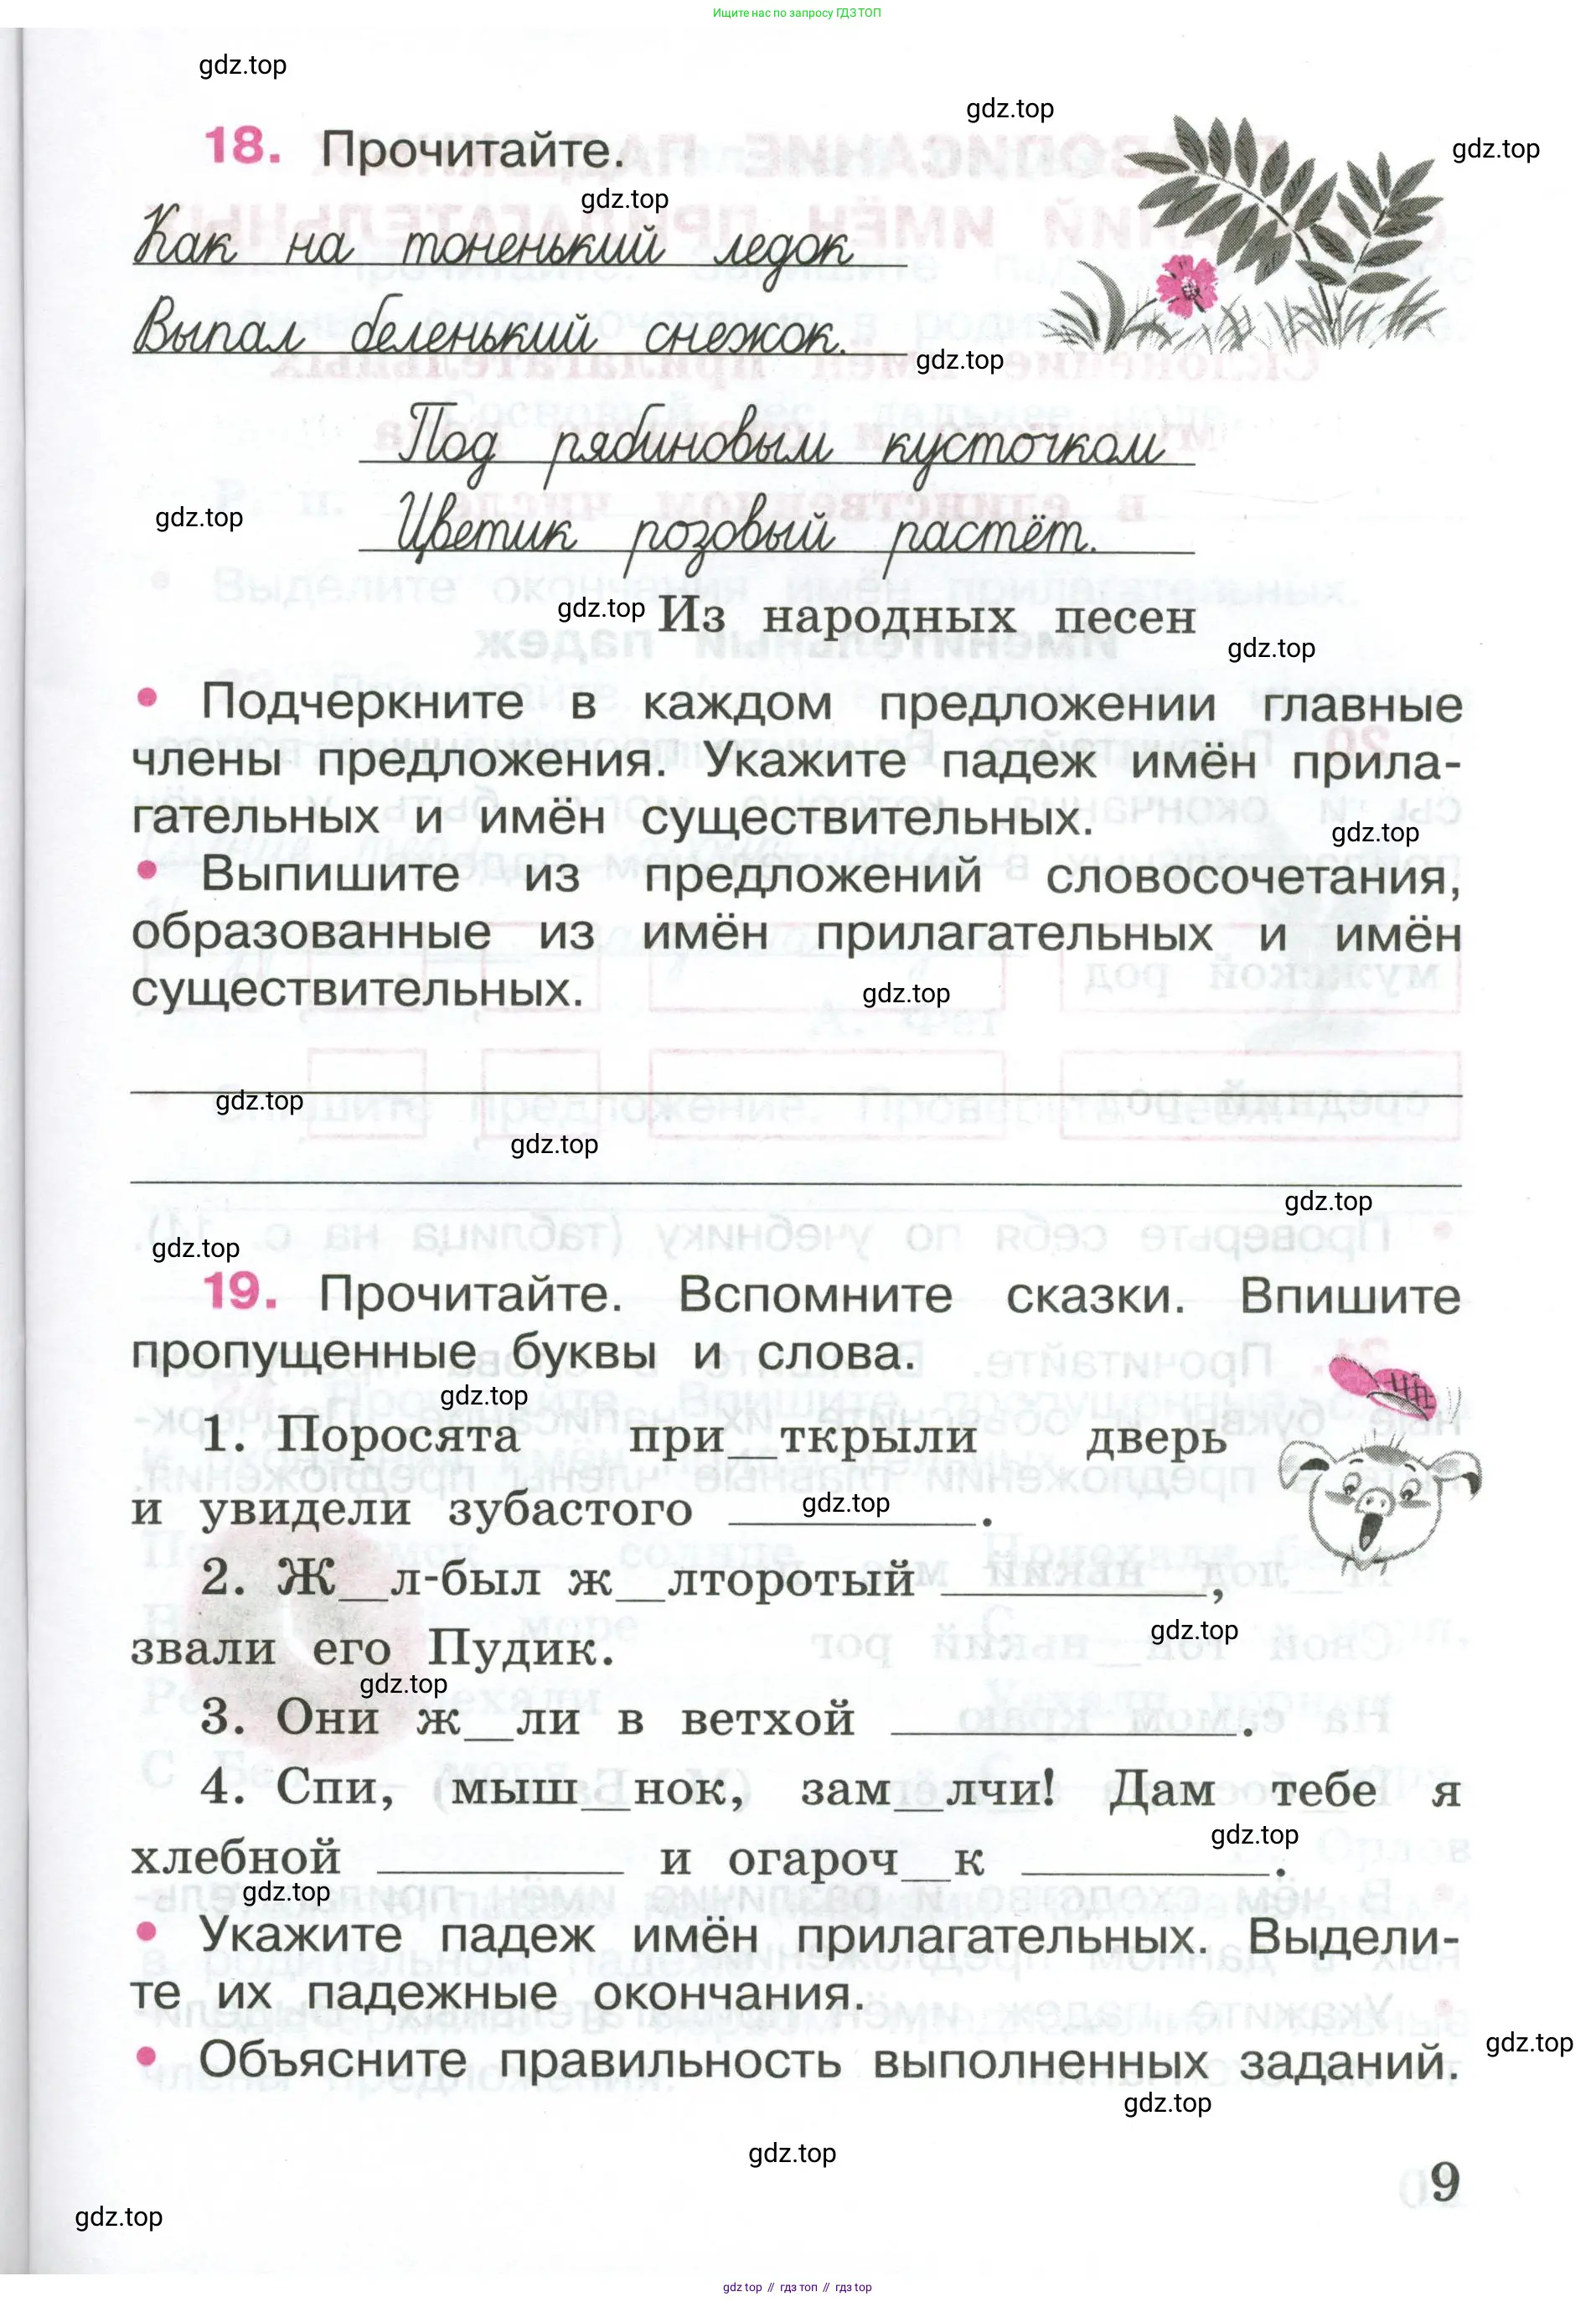 Ищите нас по запросу ГДЗ ТОП
gdz.top
gdz.top
18. Прочитайте.
gdz.top
gdz.top
Как на тоненький ледок
Выпал беленький снежок.
gdz.top
Под рябиновым кусточком
gdz.top
Цветик розовый растёт.
gdz.top Из народных песен
gdz.top
• Подчеркните в каждом предложении главные
члены предложения. Укажите падеж имён прила-
гательных и имён существительных.
gdz.top
• Выпишите из предложений словосочетания,
образованные из имён прилагательных и имён
существительных.
gdz.top
gdz.top
gdz.top
gdz.top
gdz.top
19. Прочитайте. Вспомните сказки. Впишите
пропущенные буквы и слова.
gdz.top
1. Поросята при__ткрыли дверь
и увидели зубастого gdz.top.
2. Ж__л-был ж__лторотый __________,
gdz.top
звали его Пудик.
gdz.top
3. Они ж__ли в ветхой _____________.
4. Спи, мыш__нок, зам__лчи! Дам тебе я
gdz.top
хлебной _________ и огароч__к _________.
gdz.top
• Укажите падеж имён прилагательных. Выдели-
те их падежные окончания.
gdz.top
• Объясните правильность выполненных заданий.
gdz.top
gdz.top
9
gdz.top
gdz top // гдз топ // гдз top